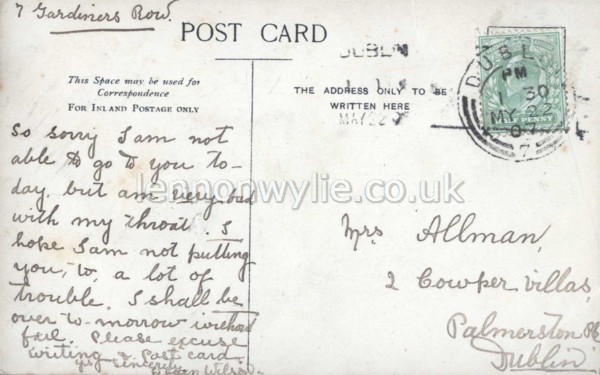 7 Gardiners Row.
POST CARD
This Space may be used for
Correspondence
FOR INLAND POSTAGE ONLY
THE ADDRESS ONLY TO BE
WRITTEN HERE
DUBLIN
MAY 22 07
DUBL
PM
1 30
MY 22
07
7
PENNY
So sorry I am not
able to go to you to-
day, but am very bad
with my throat. I
hope I am not putting
you, to, a lot of
trouble. I shall be
over to-morrow without
fail. Please excuse
writing & Post card
yrs sincerely
Wilson
Mrs Allman,
2 Cowper Villas,
Palmerston Pk
Dublin
lennonwylie.co.uk